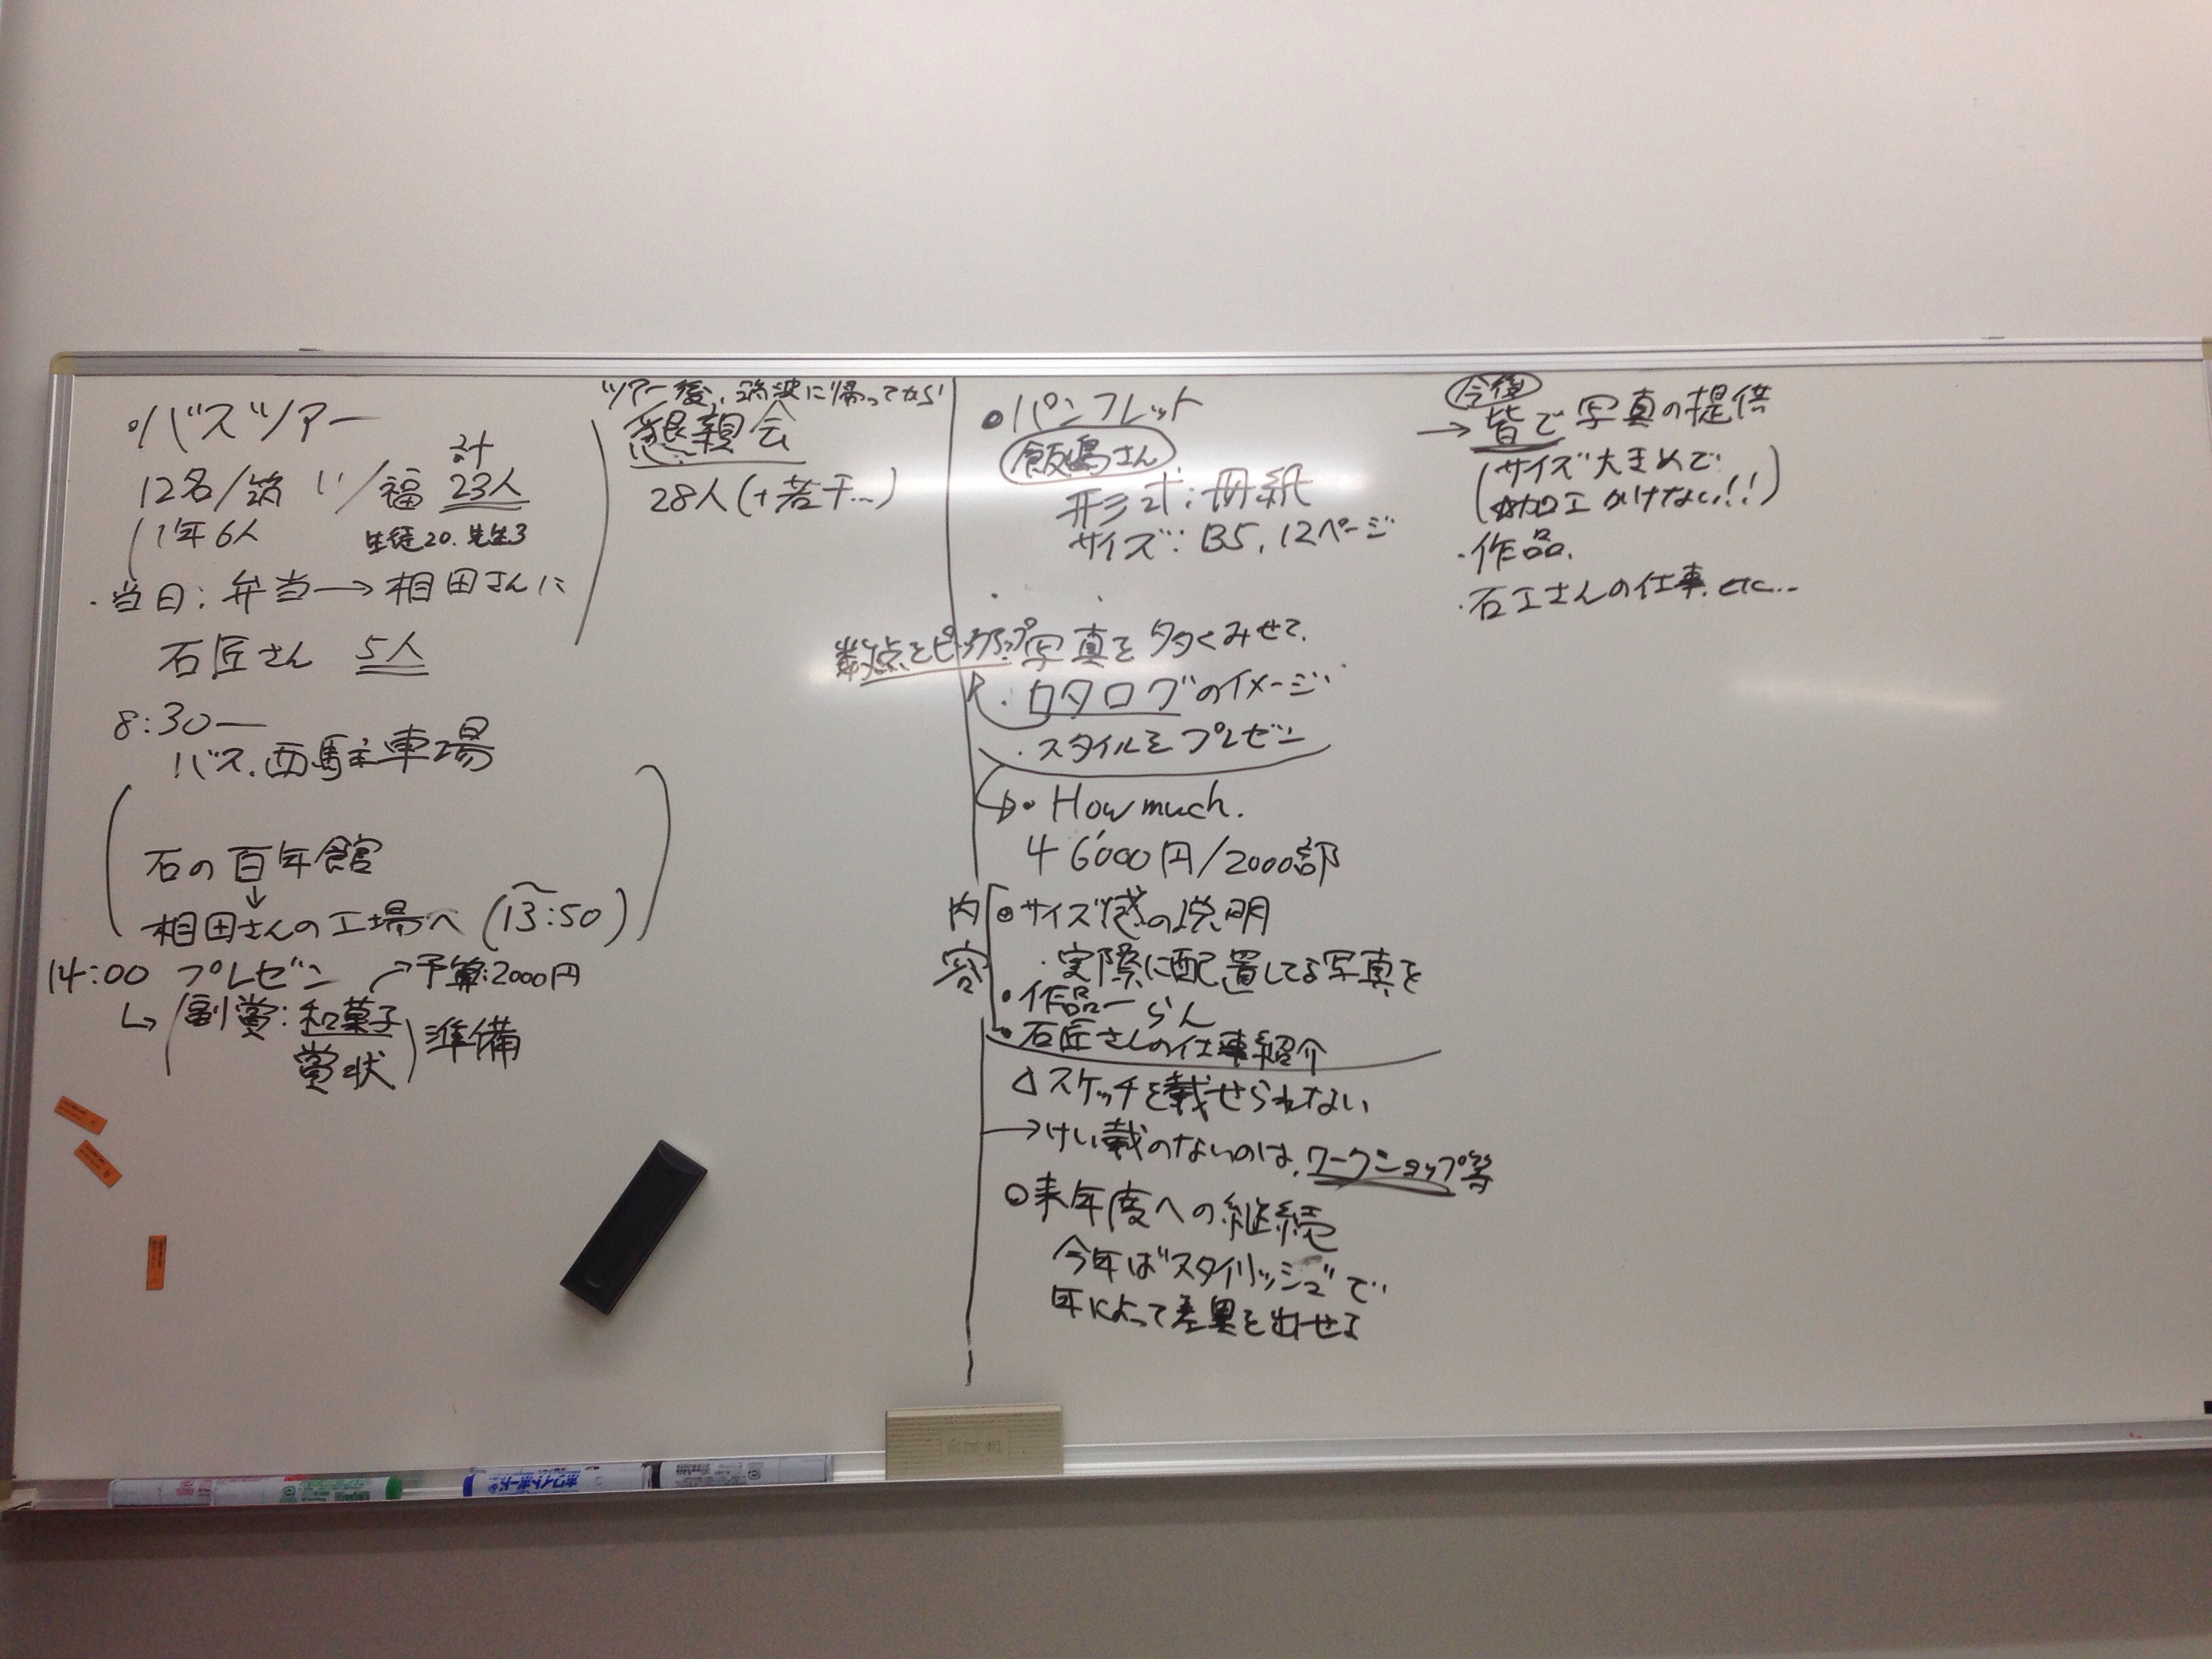 ・バスツアー
計
12名/筑 11/福 23人
1年6人 生徒20.先生3
・当日:弁当→相田さんに
石匠さん 5人
8:30ー
バス.西駐車場
石の百年館
↓
相田さんの工場へ(13:50)
14:00 プレゼン →予算:2000円
↳(副賞:和菓子
賞状)準備
ツアー後,筑波に帰ってから
懇親会
28人(+若干...)
・パンフレット
飯島さん
形式:冊紙
サイズ:B5,12ページ
数点をピックアップ 写真を多くみせて.
・カタログのイメージ
・スタイルをプレゼン
→・How much.
46000円/2000部
内容
・サイズ感の説明
・実際に配置してる写真を
・作品一らん
・石匠さんの仕事紹介
△スケッチを載せられない
→けい載のないのは,ワークショップ等
○来年度への継続
今年は"スタイリッシュ"で
年によって差異を出せる
今後
→皆で写真の提供
(サイズ大きめで
加工かけない!!)
・作品.
・石工さんの仕事.etc...
ホワイトボード